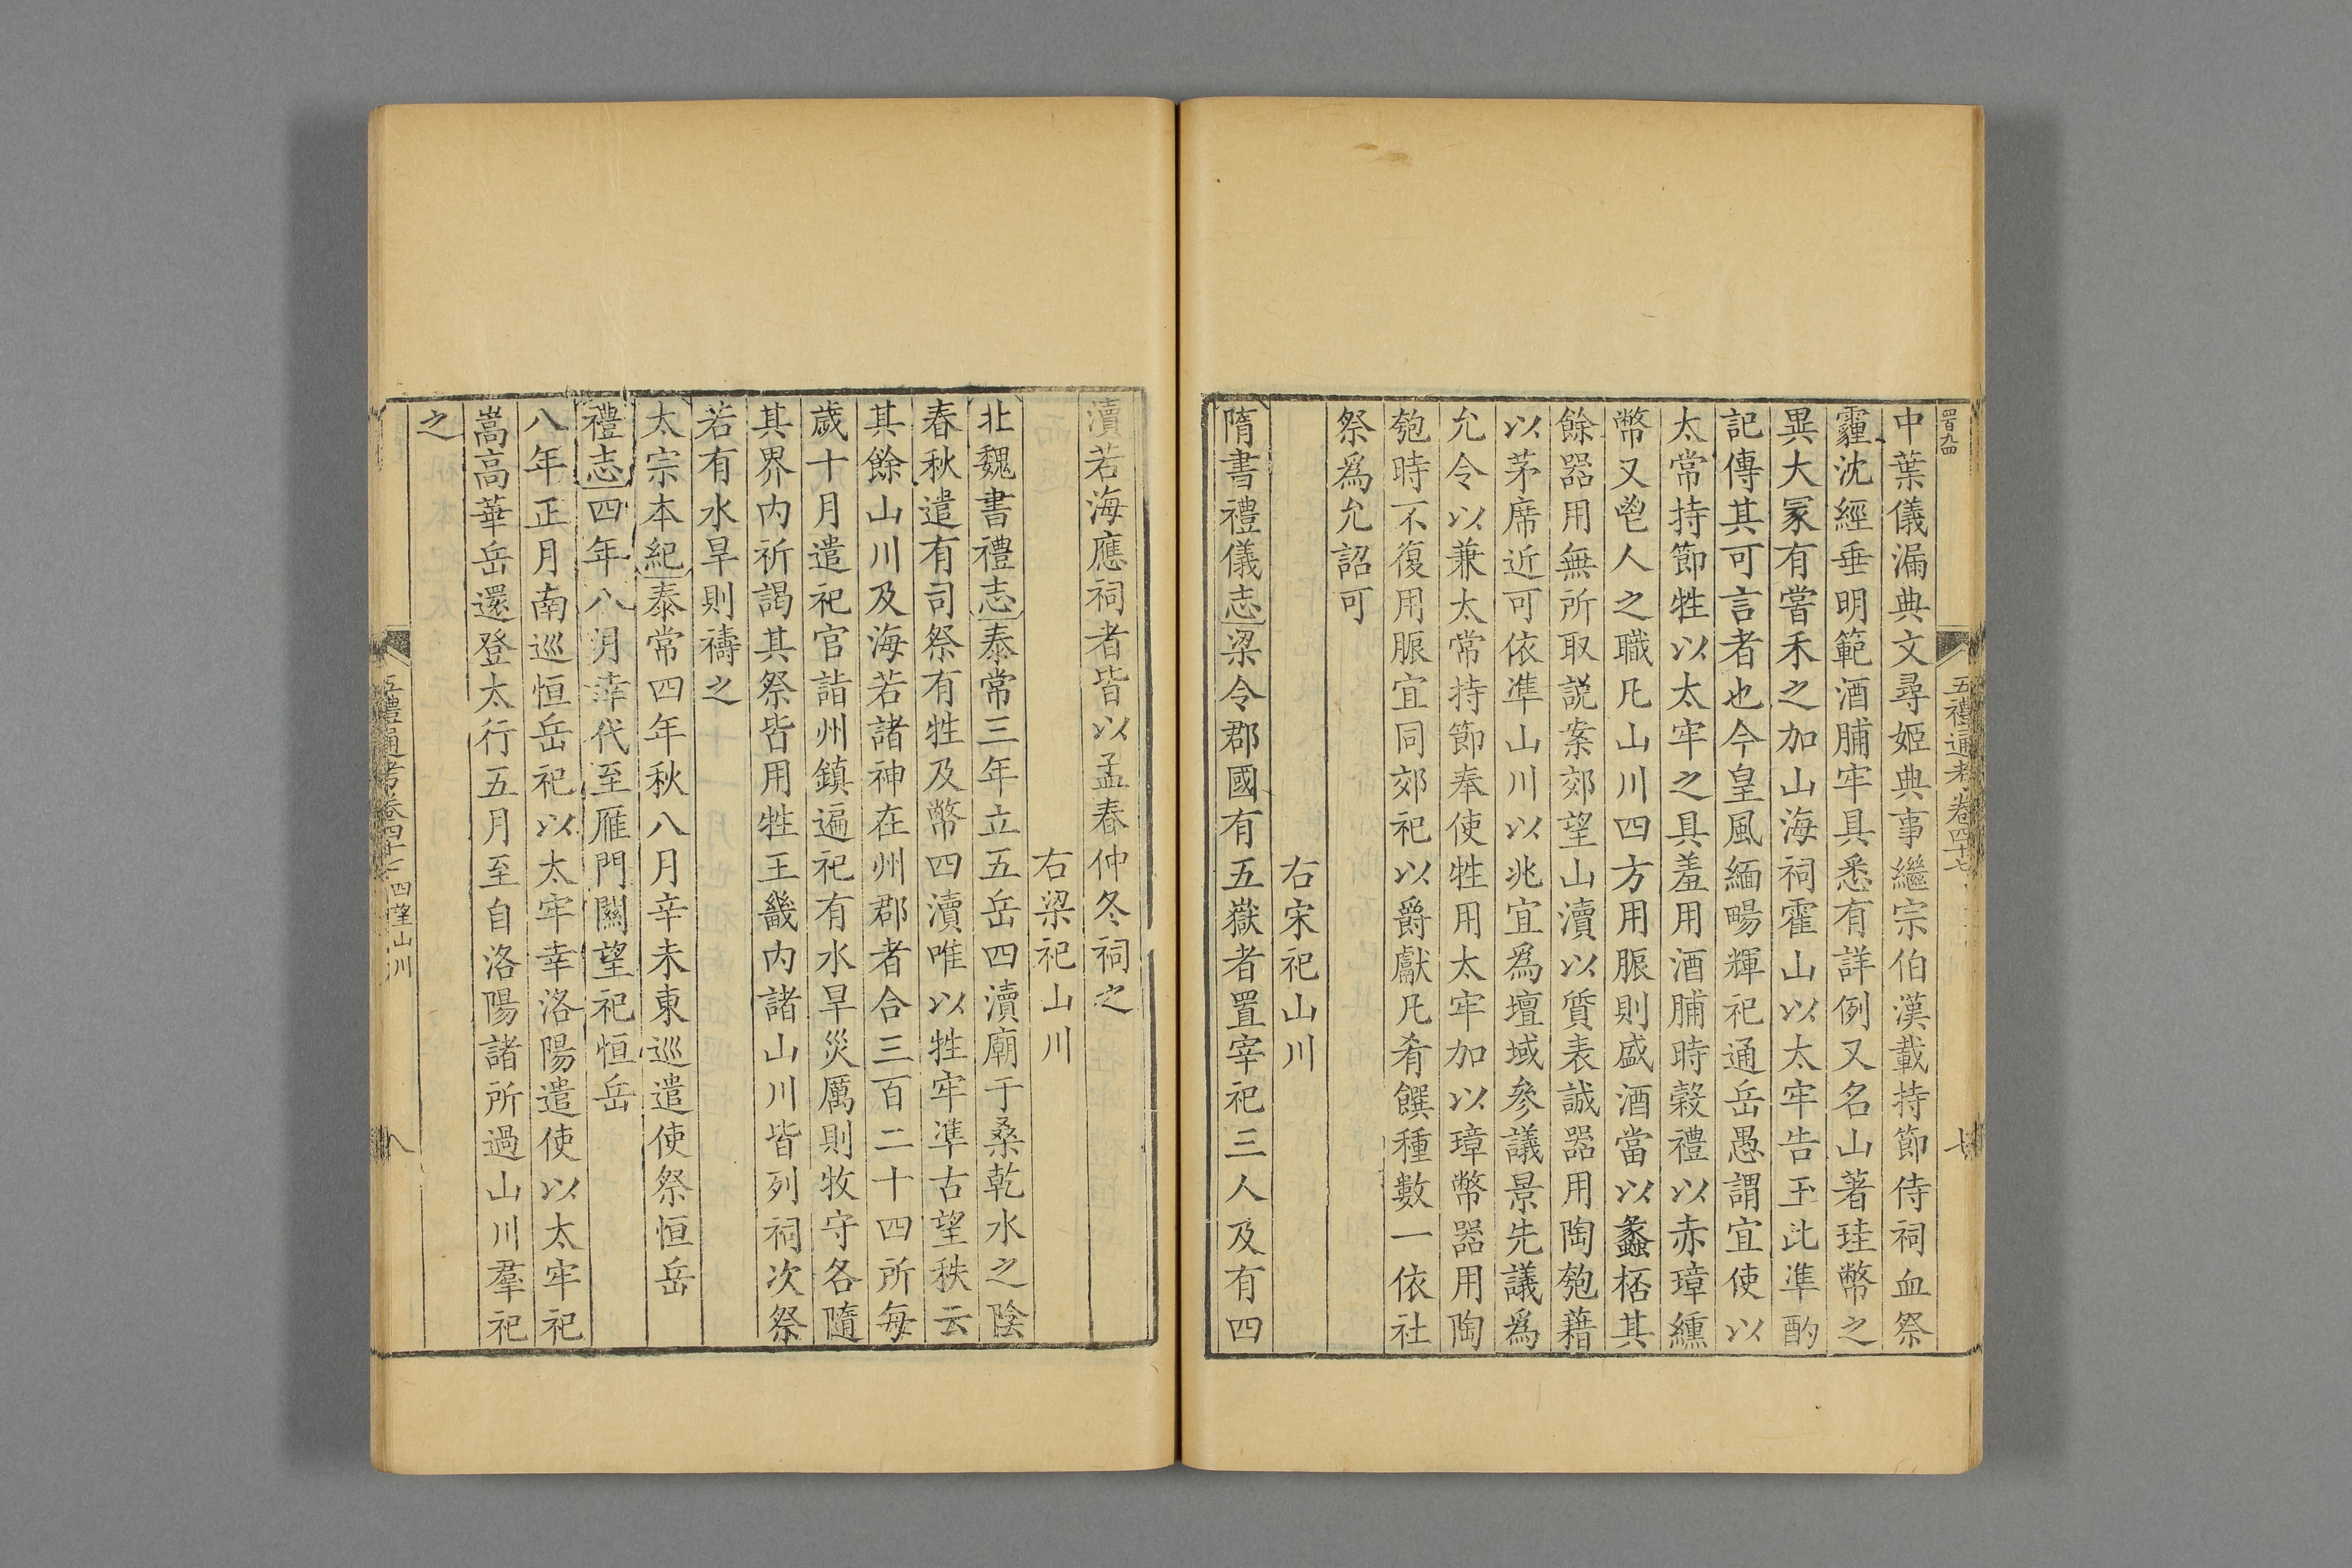 四百九四
五禮通考卷四十七
七
中葉儀漏典文尋姬典事繼宗伯漢載持節侍祠血祭
霾沈經垂明範酒脯牢具悉有詳例又名山著珪幣之
異大冢有嘗禾之加山海祠霍山以太牢告玉比準酌
記傳其可言者也今皇風緬暢輝祀通岳愚謂宜使以
太常持節牲以太牢之具羞用酒脯時穀禮以赤璋纁
幣又鬯人之職凡山川四方用脤則盛酒當以蠡桮其
餘器用無所取說案郊望山瀆以質表誠器用陶匏藉
以茅席近可依準山川以兆宜爲壇域參議景先議爲
允令以兼太常持節奉使牲用太牢加以璋幣器用陶
匏時不復用脤宜同郊祀以爵獻凡肴饌種數一依社
祭爲允詔可
右宋祀山川
隋書禮儀志梁令郡國有五嶽者置宰祀三人及有四
瀆若海應祠者皆以孟春仲冬祠之
右梁祀山川
北魏書禮志泰常三年立五岳四瀆廟于桑乾水之陰
春秋遣有司祭有牲及幣四瀆唯以牲牢準古望秩云
其餘山川及海若諸神在州郡者合三百二十四所每
歲十月遣祀官詣州鎮遍祀有水旱災厲則牧守各隨
其界內祈謁其祭皆用牲王畿內諸山川皆列祠次祭
若有水旱則禱之
太宗本紀泰常四年秋八月辛未東巡遣使祭恒岳
禮志四年八月幸代至雁門關望祀恒岳
八年正月南巡恒岳祀以太牢幸洛陽遣使以太牢祀
嵩高華岳還登太行五月至自洛陽諸所過山川羣祀
之
五禮通考卷四十七 四望山川
八